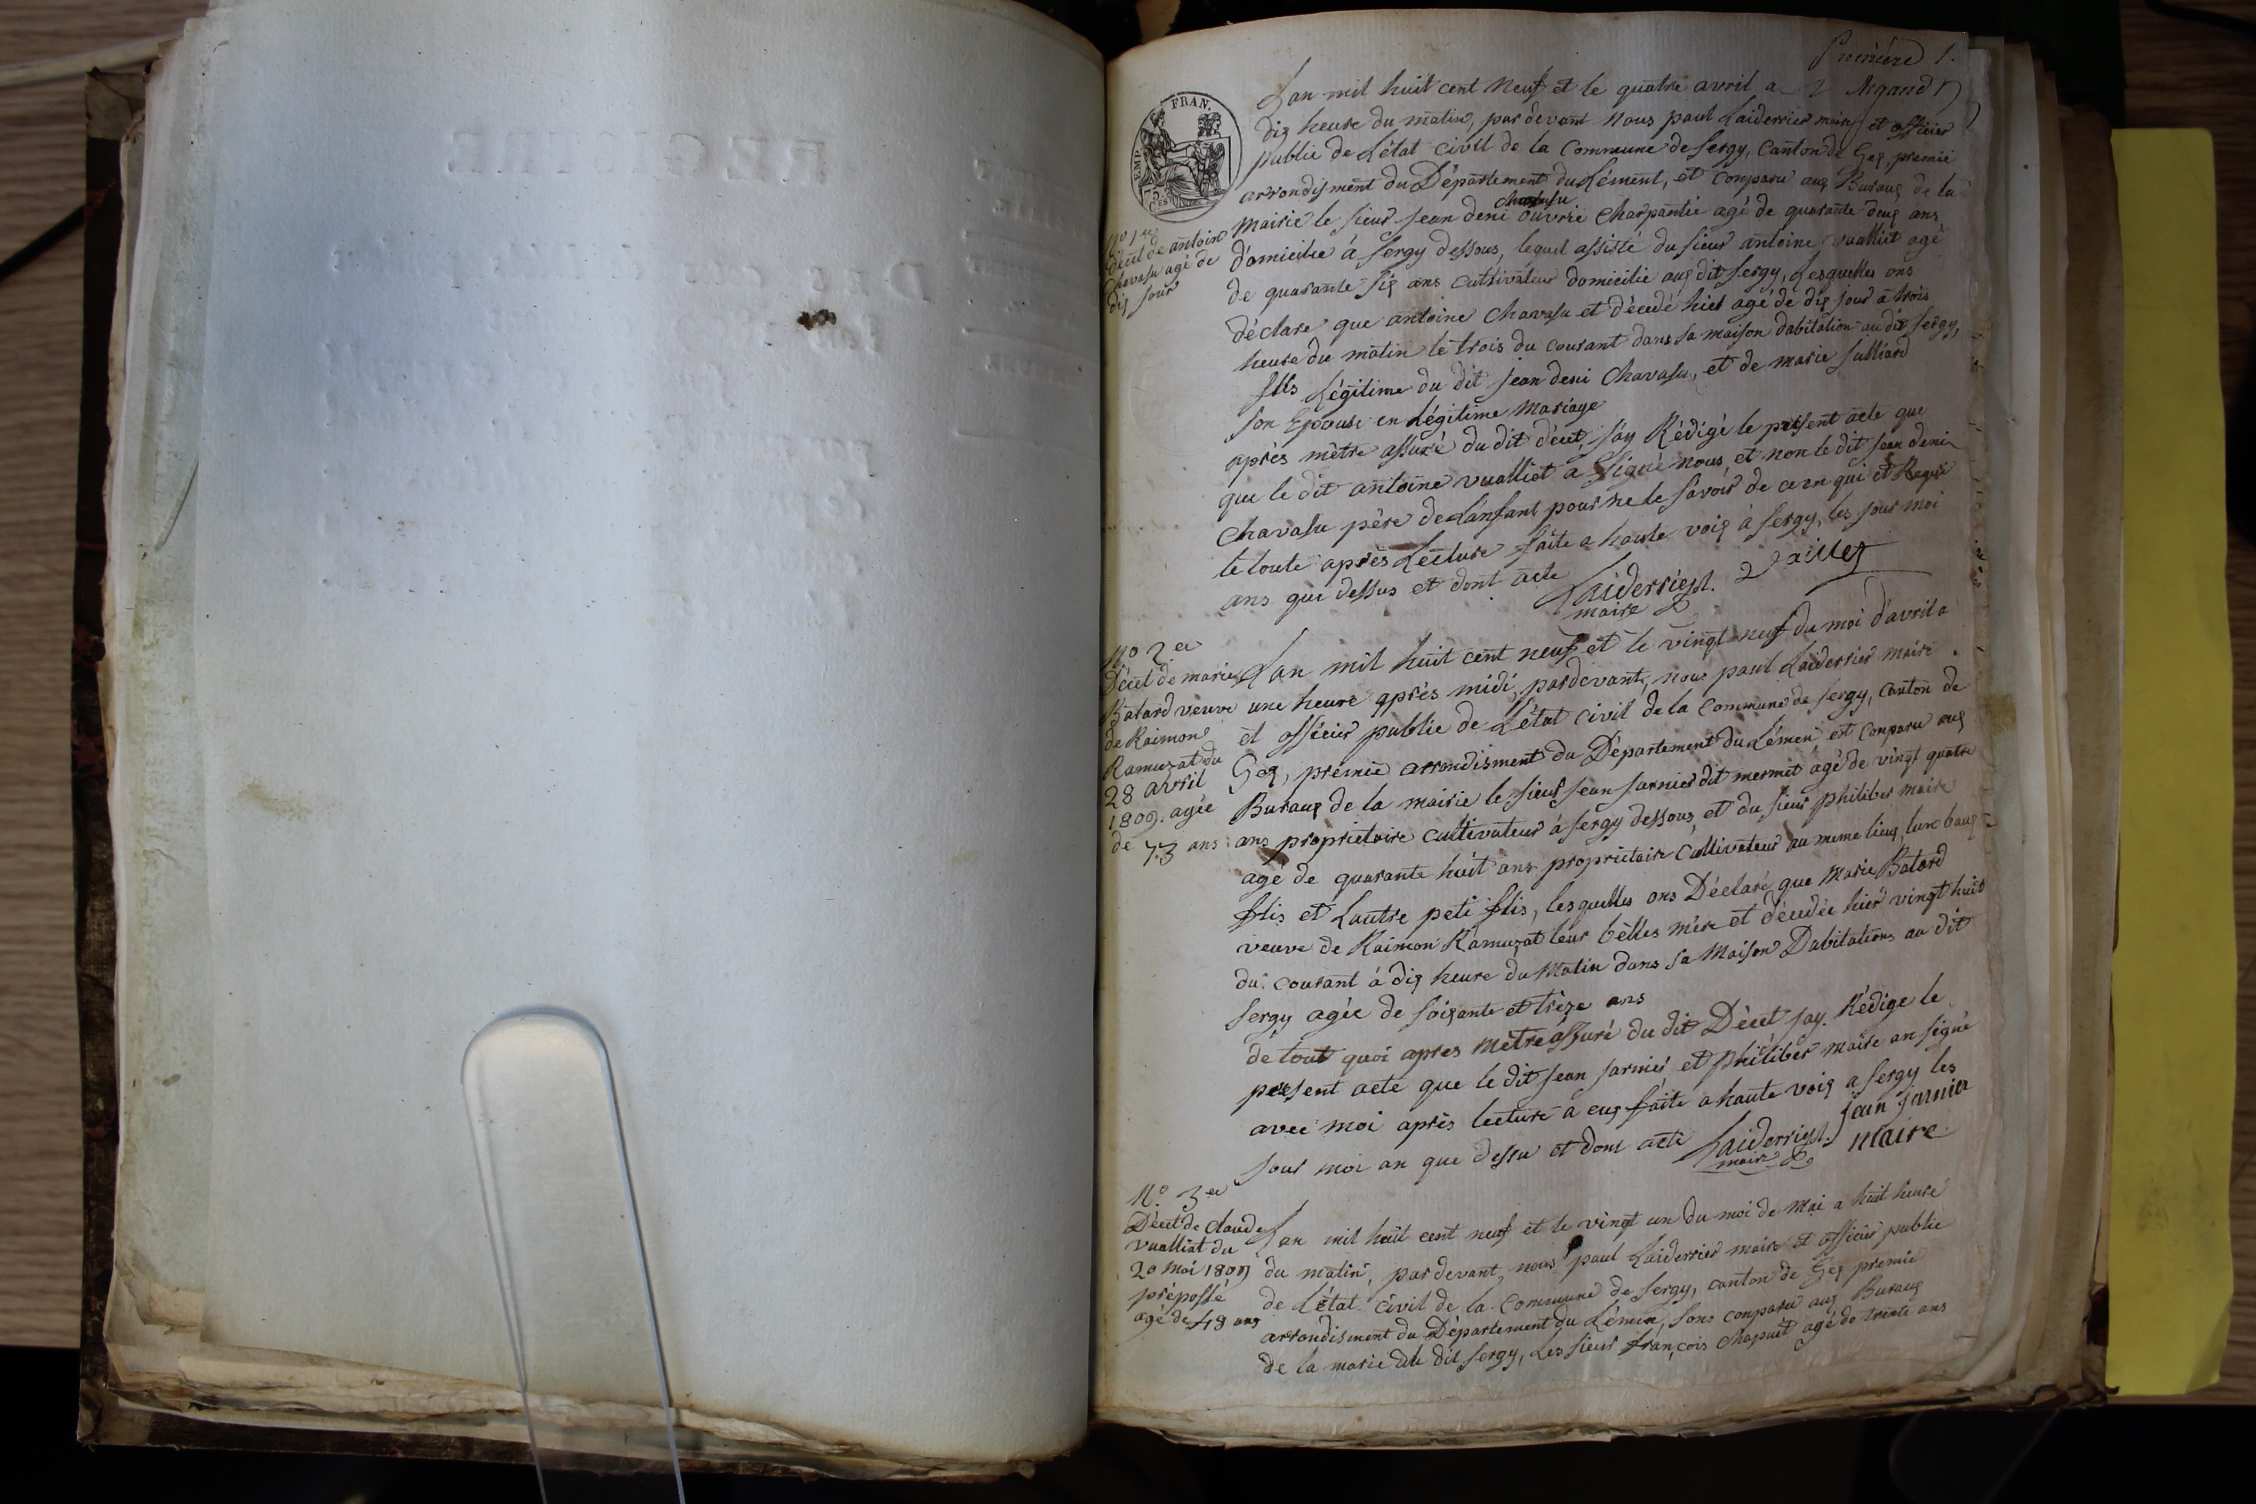 Première 1.
EMP. FRAN.
Lan mil huit cent neuf et le quatre avril a
dix heure du matin, par devant nous paul Laiderrier maire et officier
public de L'état civil de la Commune de Sergy, Canton de Gex, premie
arrondisment du Département du Lément, et conparu aux Buraux de la
chavasu
Mairie le sieur jean deni ouvrie charpantie agé de quarante deux ans
domicilie à Sergy dessous, lequel assisté du sieur antoine vualliet agé
de quarante six ans cultivateur domicilie aux dit Sergy, Lesquelles ons
déclare que antoine Chavasu et décedé hier agé de dix jour à trois
heure du matin le trois du courant dans sa maison dabitation au dit Sergy,
fils Légitime du dit jean deni Chavasu, et de marie julliard
son Epouse en Légitime Mariage
après mètre assuré du dit décet, jay Rédigé le present acte que
que le dit antoine vualliet a signé nous et non le dit jean deni
Chavasu père de Lanfant pour ne le savoir de ce en qui et Requi
le toute après Lecture faite a haute voix à Sergy, les jour moi
ans que dessus et dont acte Laiderrier
maire
No 1er
décet de antoine
Chavasu agé de
dix jour
No 2er
Décet de marie
Batard veuve
de Raimon
Ramuzat du
28 avril
1809. agée
de 73 ans
Lan mil huit cent neuf et le vingt neuf du moi d'avril a
une heure après midi, pardevant, nous paul Laiderrier maire
et officier public de L'état civil de la Commune de Sergy, canton de
Gex, premie arrondisment du Département du Lémen est conparu aux
Buraux de la mairie le sieur jean jarnier dit mermet agé de vingt quatre
ans proprietaire cultivateur à Sergy dessous, et du sieur philiber maire
agé de quarante huit ans proprietaire cultivateur au meme lieux, lun baux
fils et Lautre peti fils, lesquelles ons Déclaré que Marie Batard
veuve de Raimon Ramuzat leur belles mère et décedée hier vingt huit
du courant à dix heure du Matin dans sa Maison Dabitations au dit
Sergy agée de soixante et trèze ans
de tout quoi apres Mètre assuré du dit Décet jay Rédige le
present acte que le dit jean jarnier et philiber maire on signé
avec moi après lecture a eux faite a haute voix a Sergy les
jour moi an que dessu et dont acte Laiderrier jean jarnier
maire maire
No 3er
Décet de claude
vualliet du
20 Mai 1809
prépossé
agé de 48 ans
Lan mil huit cent neuf et le vingt un du moi de Mai a huit heure
du matin, par devant, nous paul Laiderrier maire et officier public
de L'état civil de la Commune de Sergy, canton de Gex premie
arrondisment du Département du Lémen, sons conparu aux Buraux
de la marie du dit Sergy, Les sieur françois Chapuit agé de trente ans